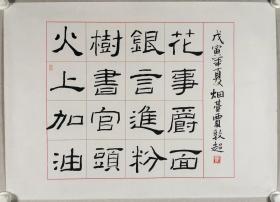 火樹銀花
上書言事
加官進爵
油頭粉面
戊寅年夏烟臺賈敦超